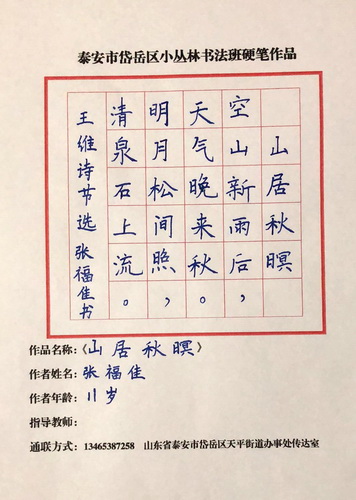 泰安市岱岳区小丛林书法班硬笔作品
山居秋暝
空山新雨后，
天气晚来秋。
明月松间照，
清泉石上流。
王维诗节选 张福佳书
作品名称：《山居秋暝》
作者姓名：张福佳
作者年龄：11岁
指导教师：
通联方式：13465387258 山东省泰安市岱岳区天平街道办事处传达室